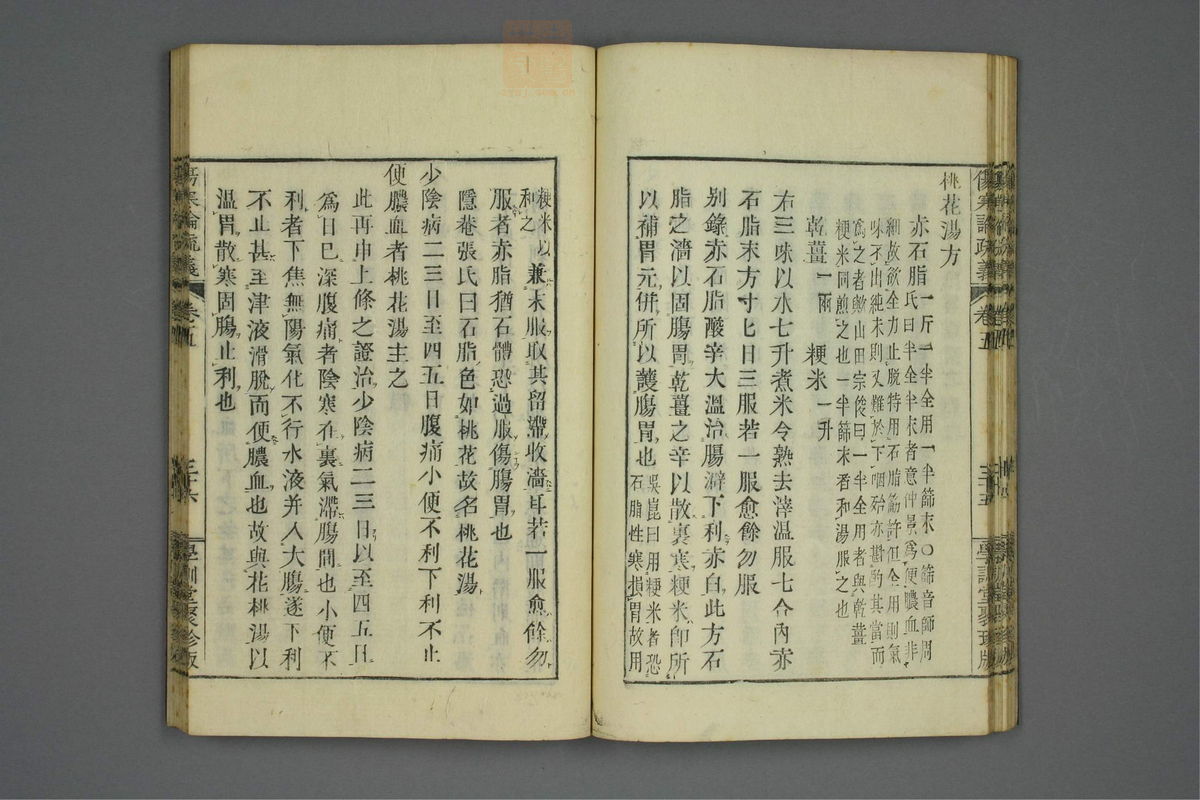 桃花湯方
赤石脂一斤一半全用一半篩末○篩音師周
氏曰半全半末者意仲景爲便膿血非
細故欲全力止脫特用石脂觔許但全用則氣
味不出純末則又難於下咽殆亦斟酌其當而
爲之者歟山田宗俊曰一半全用者與乾薑
粳米同煎之也一半篩末者和湯服之也
乾薑一兩 粳米一升
右三味以水七升煮米令熟去滓溫服七合內赤
石脂末方寸匕日三服若一服愈餘勿服
別錄赤石脂酸辛大溫治腸澼下利赤白此方石
脂之濇以固腸胃乾薑之辛以散裏寒粳米卽所
以補胃元併所以護腸胃也吳崑曰用粳米者恐
石脂性寒損胃故用
傷寒論疏義
卷五
三十五
學訓堂聚珍版
粳米以
和之兼末服取其留滯收濇耳若一服愈餘勿
服者赤脂猶石體恐過服傷腸胃也
隱菴張氏曰石脂色如桃花故名桃花湯
少陰病二三日至四五日腹痛小便不利下利不止
便膿血者桃花湯主之
此再申上條之證治少陰病二三日以至四五日
爲日已深腹痛者陰寒在裏氣滯腸間也小便不
利者下焦無陽氣化不行水液并入大腸遂下利
不止甚至津液滑脫而便膿血也故與花桃湯以
溫胃散寒固腸止利也
傷寒論疏義
卷五
三十六
學訓堂聚珍版